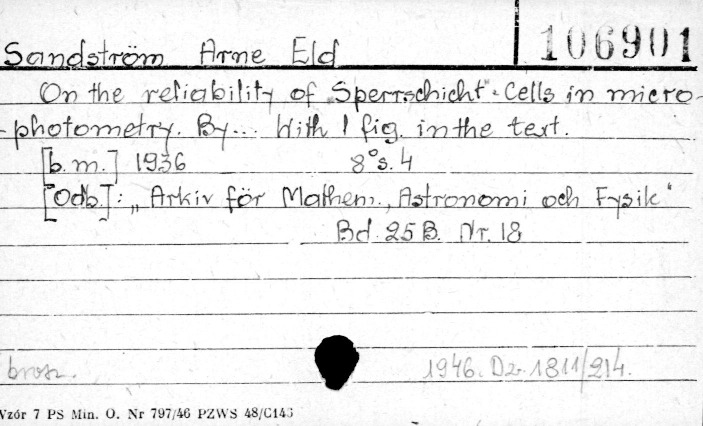 106901
Sandström Arne Eld
On the reliability of „Sperrschicht"-Cells in micro-
-photometry. By... With 1 fig. in the text.
[b.m.] 1936 8° s. 4
[Odb.]: „Arkiv för Mathem., Astronomi och Fysik"
Bd. 25 B. Nr. 18
brosz. 1946. Dz. 1811/214.
Wzór 7 PS Min. O. Nr 797/46 PZWS 48/C143